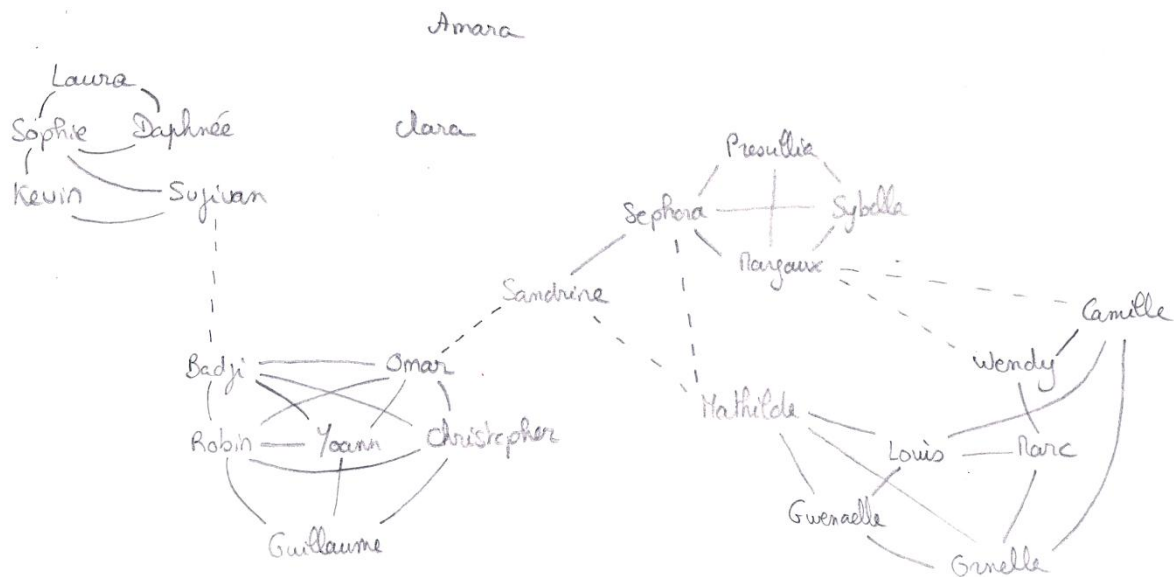 Amara
Laura
Sophie Daphnée
Clara
Kevin Sujivan
Presillia
Sephora Sybella
Margaux
Sandrine
Camille
Badji Omar
Wendy
Mathilde
Robin Yoann Christopher
Louis Marc
Gwenaelle
Guillaume
Ornella